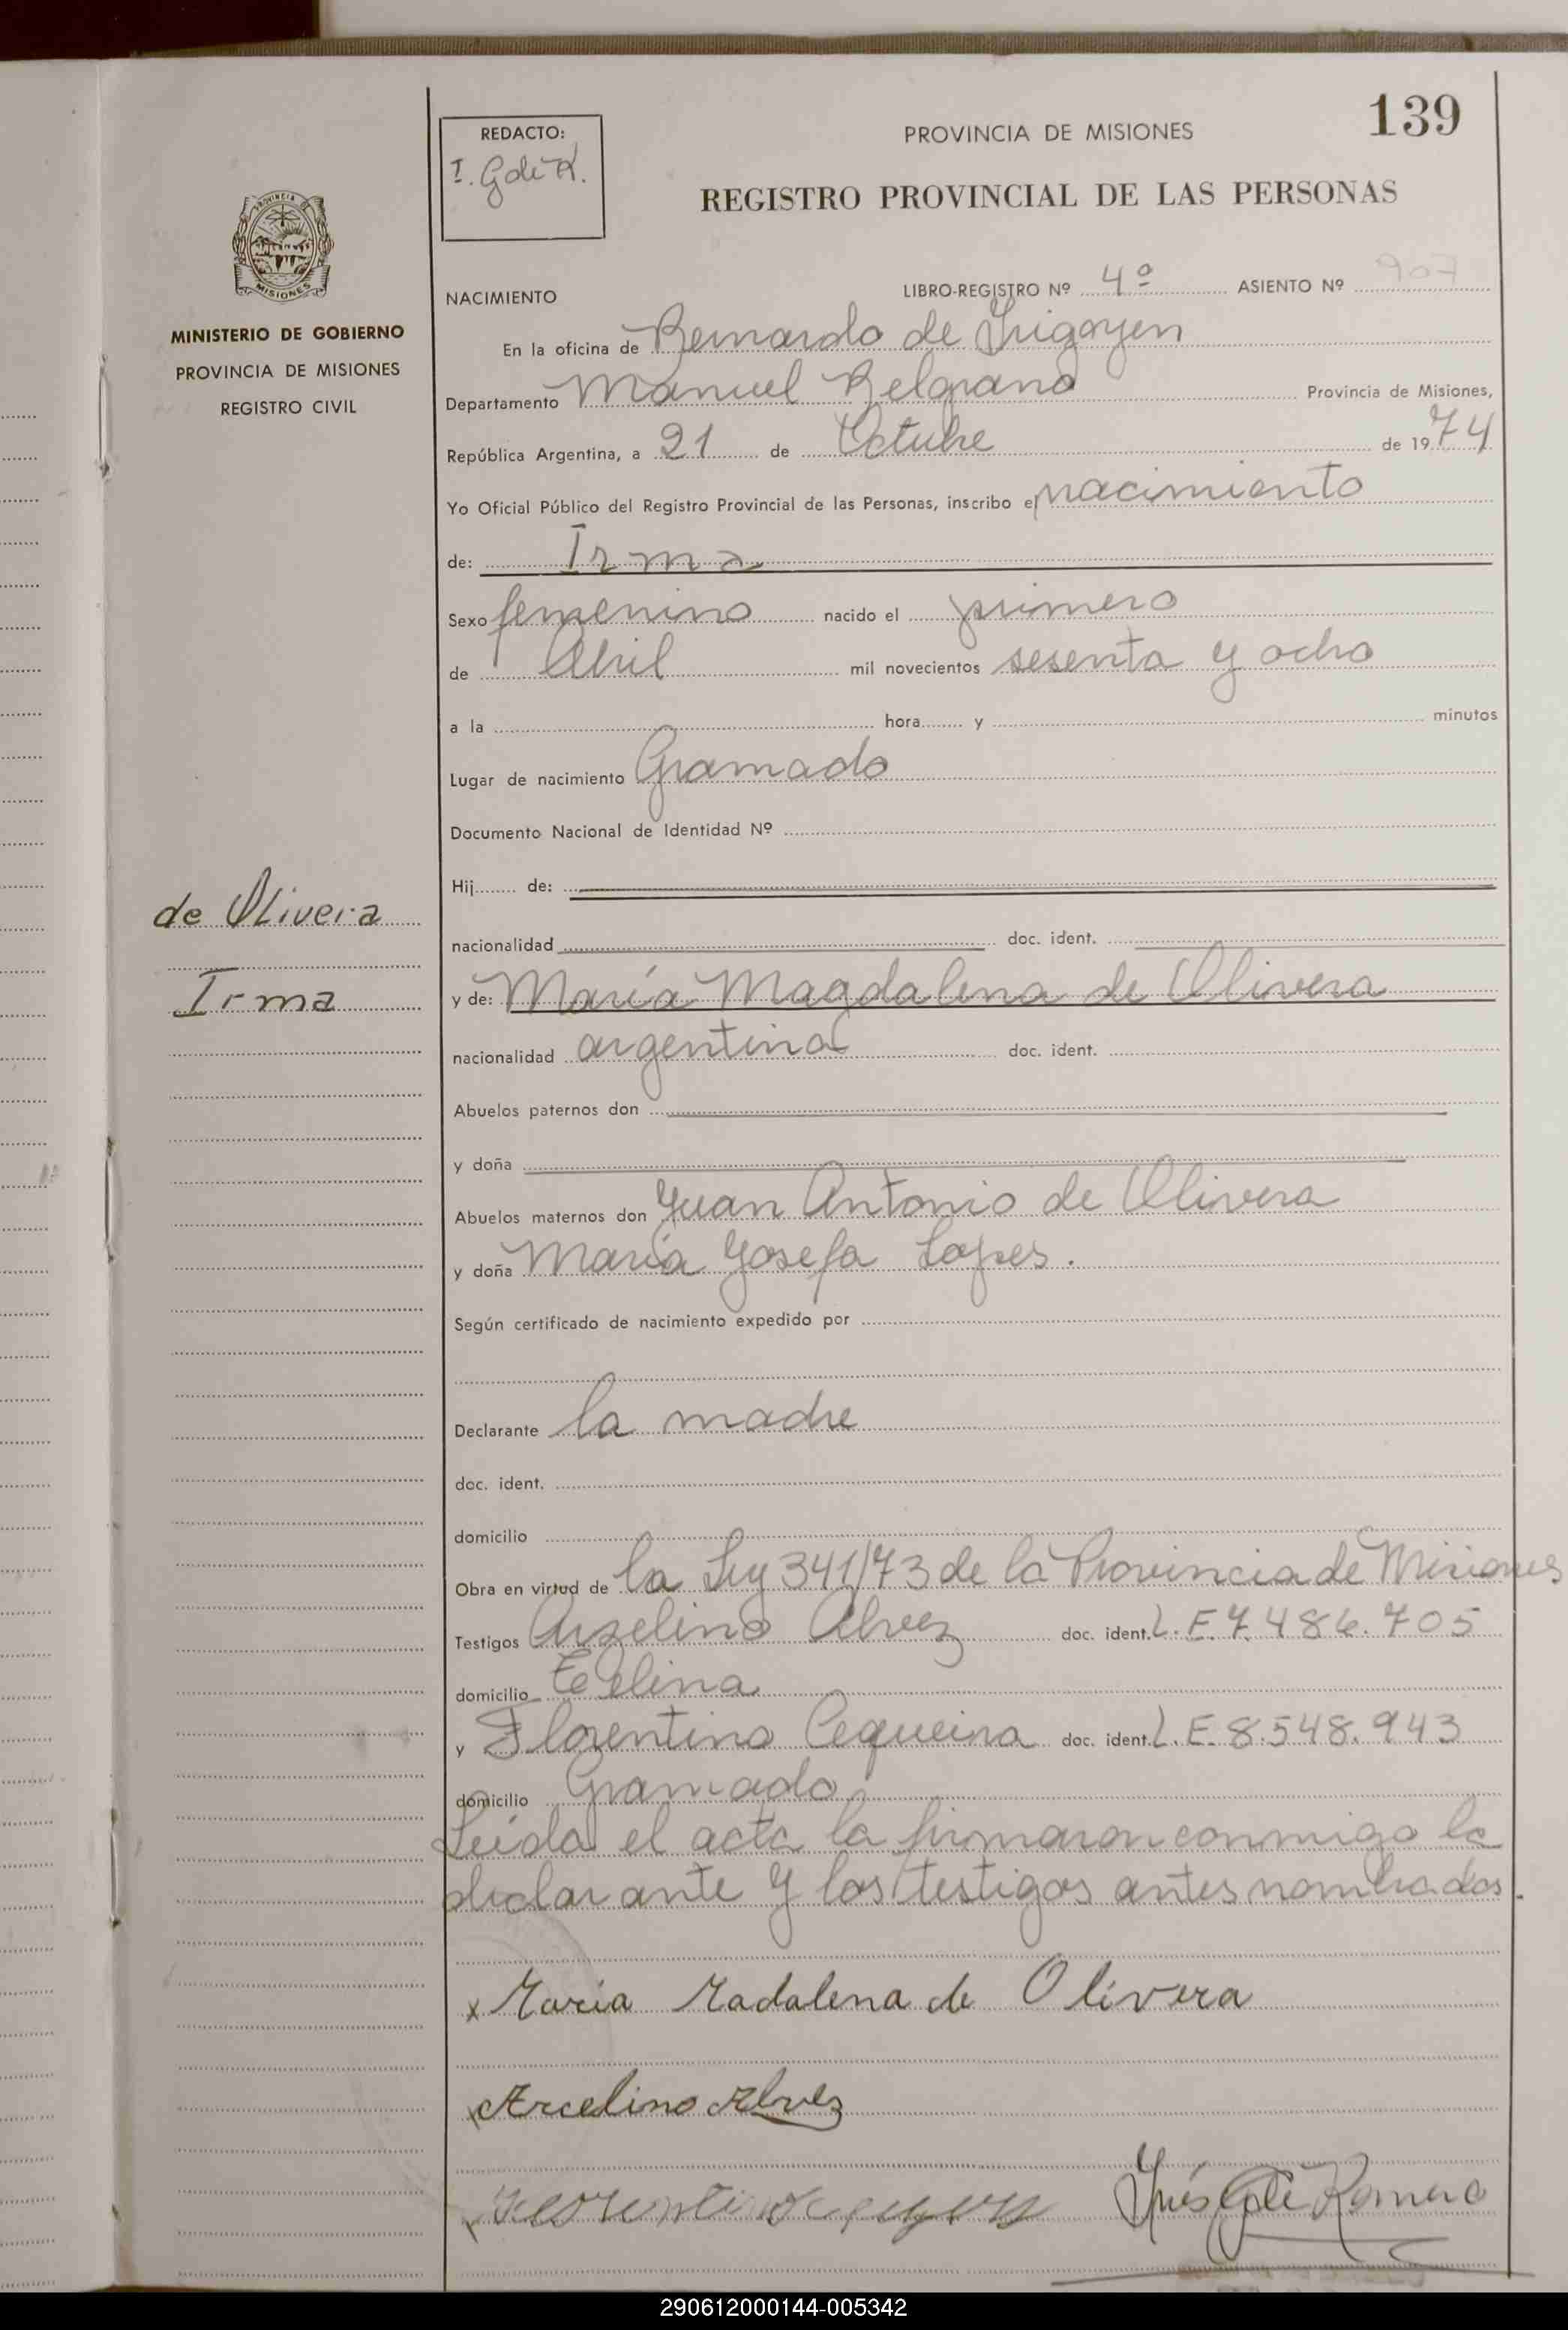 139
REDACTO:
I. Golé R.
PROVINCIA DE MISIONES
REGISTRO PROVINCIAL DE LAS PERSONAS
PROVINCIA DE
MISIONES
MINISTERIO DE GOBIERNO
PROVINCIA DE MISIONES
REGISTRO CIVIL
NACIMIENTO LIBRO-REGISTRO Nº 4º ASIENTO Nº 907
En la oficina de Bernardo de Irigoyen
Departamento Manuel Belgrano Provincia de Misiones,
República Argentina, a 21 de Octubre de 1974
Yo Oficial Público del Registro Provincial de las Personas, inscribo el nacimiento
de: Irma
Sexo femenino nacido el primero
de Abril mil novecientos sesenta y ocho
a la hora y minutos
Lugar de nacimiento Gramado
Documento Nacional de Identidad Nº
Hij de:
de Olivera
nacionalidad doc. ident.
Irma
y de: María Magdalena de Olivera
nacionalidad argentina doc. ident.
Abuelos paternos don
y doña
Abuelos maternos don Juan Antonio de Olivera
y doña María Josefa Lopes.
Según certificado de nacimiento expedido por
Declarante la madre
doc. ident.
domicilio
Obra en virtud de la Ley 341/73 de la Provincia de Misiones
Testigos Arzelino Alvez doc. ident. L.E. 7.486.705
domicilio
y Florentino Cequeira doc. ident. L.E. 8.548.943
domicilio Gramado
Leída el acta la firmaron conmigo la
declarante y los testigos antes nombrados.
x Maria Madalena de Olivera
Arcelino Alvez
Inés Golé Romero
290612000144-005342